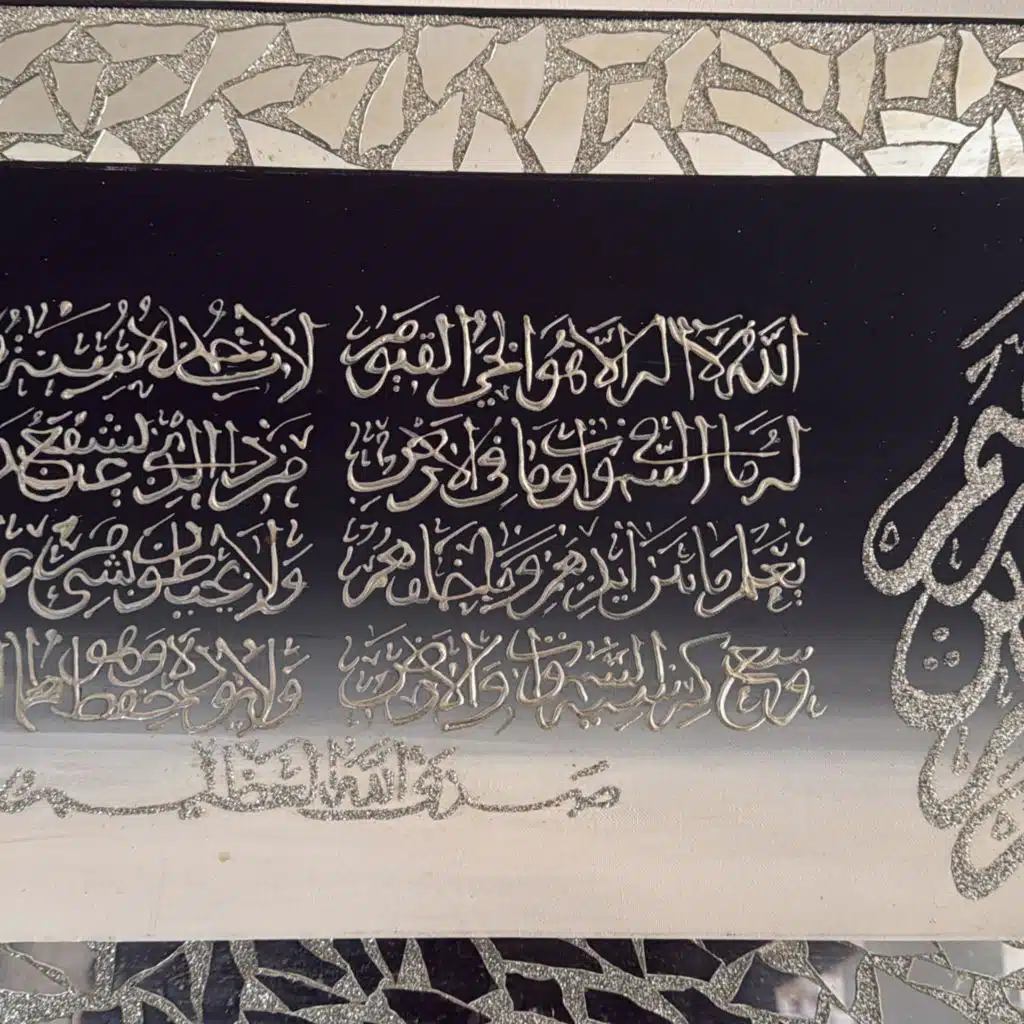 الله لا إله إلا هو الحي القيوم لا تأخذه سنة
له ما في السموات وما في الأرض من ذا الذي يشفع عنده
يعلم ما بين أيديهم وما خلفهم ولا يحيطون بشيء
وسع كرسيه السموات والأرض ولا يؤوده حفظهما وهو
صدق الله العظيم